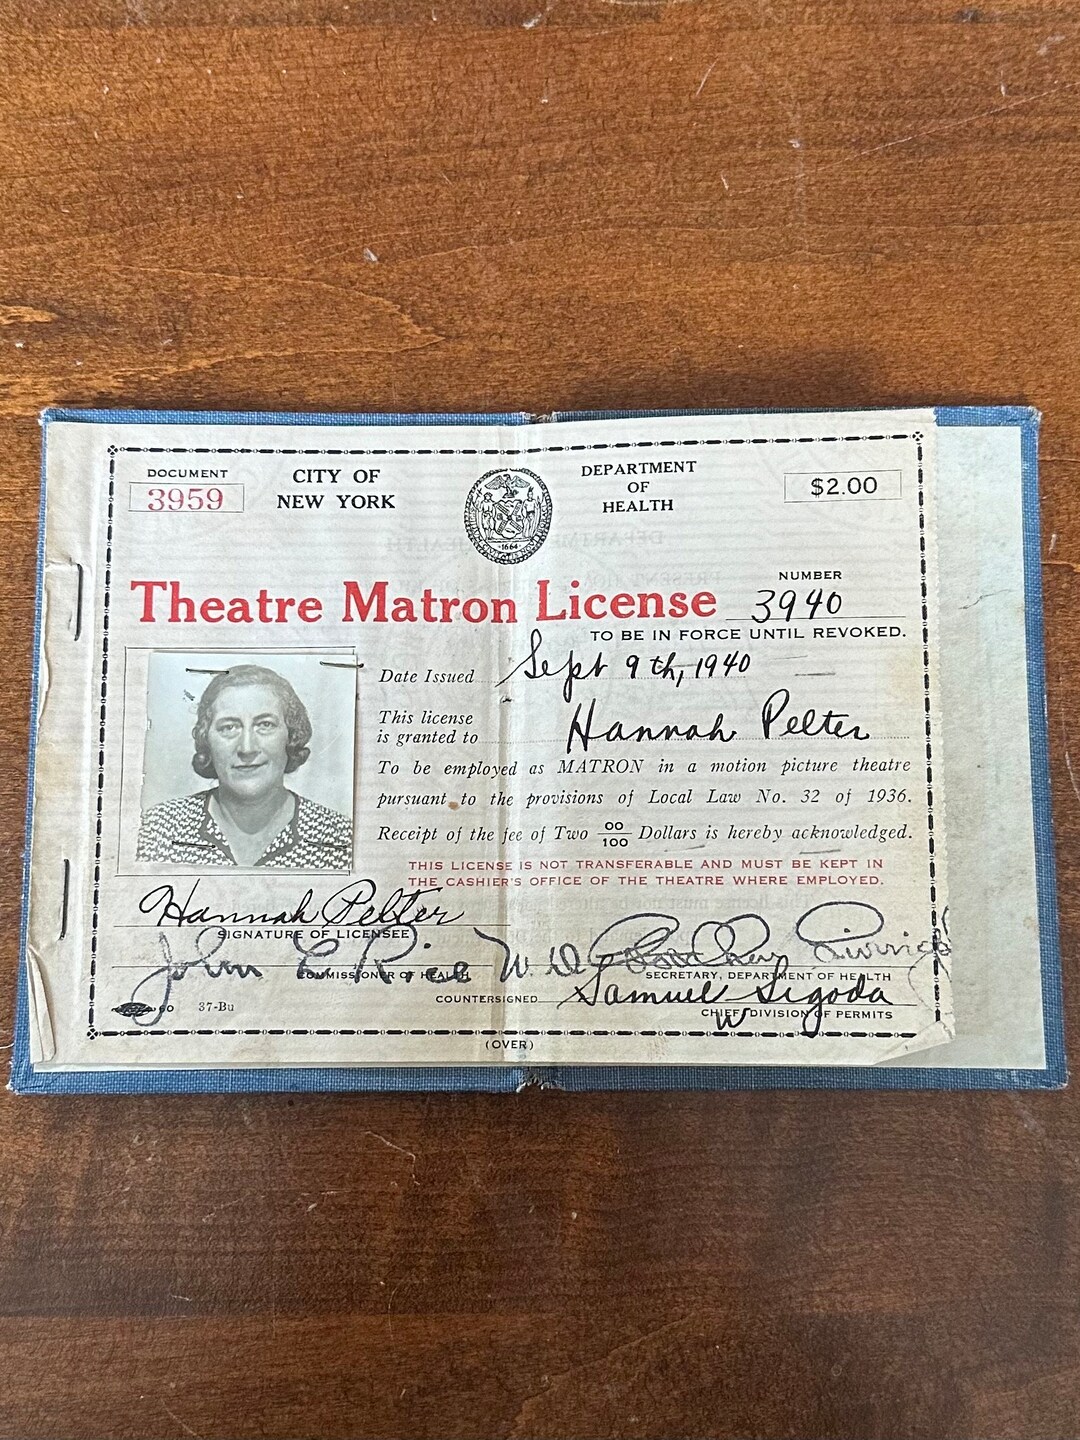 DOCUMENT
3959
CITY OF
NEW YORK
1664
DEPARTMENT
OF
HEALTH
$2.00
Theatre Matron License
NUMBER
3940
TO BE IN FORCE UNTIL REVOKED.
Date Issued Sept 9th, 1940
This license
is granted to Hannah Pelter
To be employed as MATRON in a motion picture theatre
pursuant to the provisions of Local Law No. 32 of 1936.
Receipt of the fee of Two 00/100 Dollars is hereby acknowledged.
THIS LICENSE IS NOT TRANSFERABLE AND MUST BE KEPT IN
THE CASHIER'S OFFICE OF THE THEATRE WHERE EMPLOYED.
Hannah Pelter
SIGNATURE OF LICENSEE
John L Rice M.D.
COMMISSIONER OF HEALTH
SECRETARY, DEPARTMENT OF HEALTH
COUNTERSIGNED Samuel Sigoda
CHIEF, DIVISION OF PERMITS
37-Bu
(OVER)